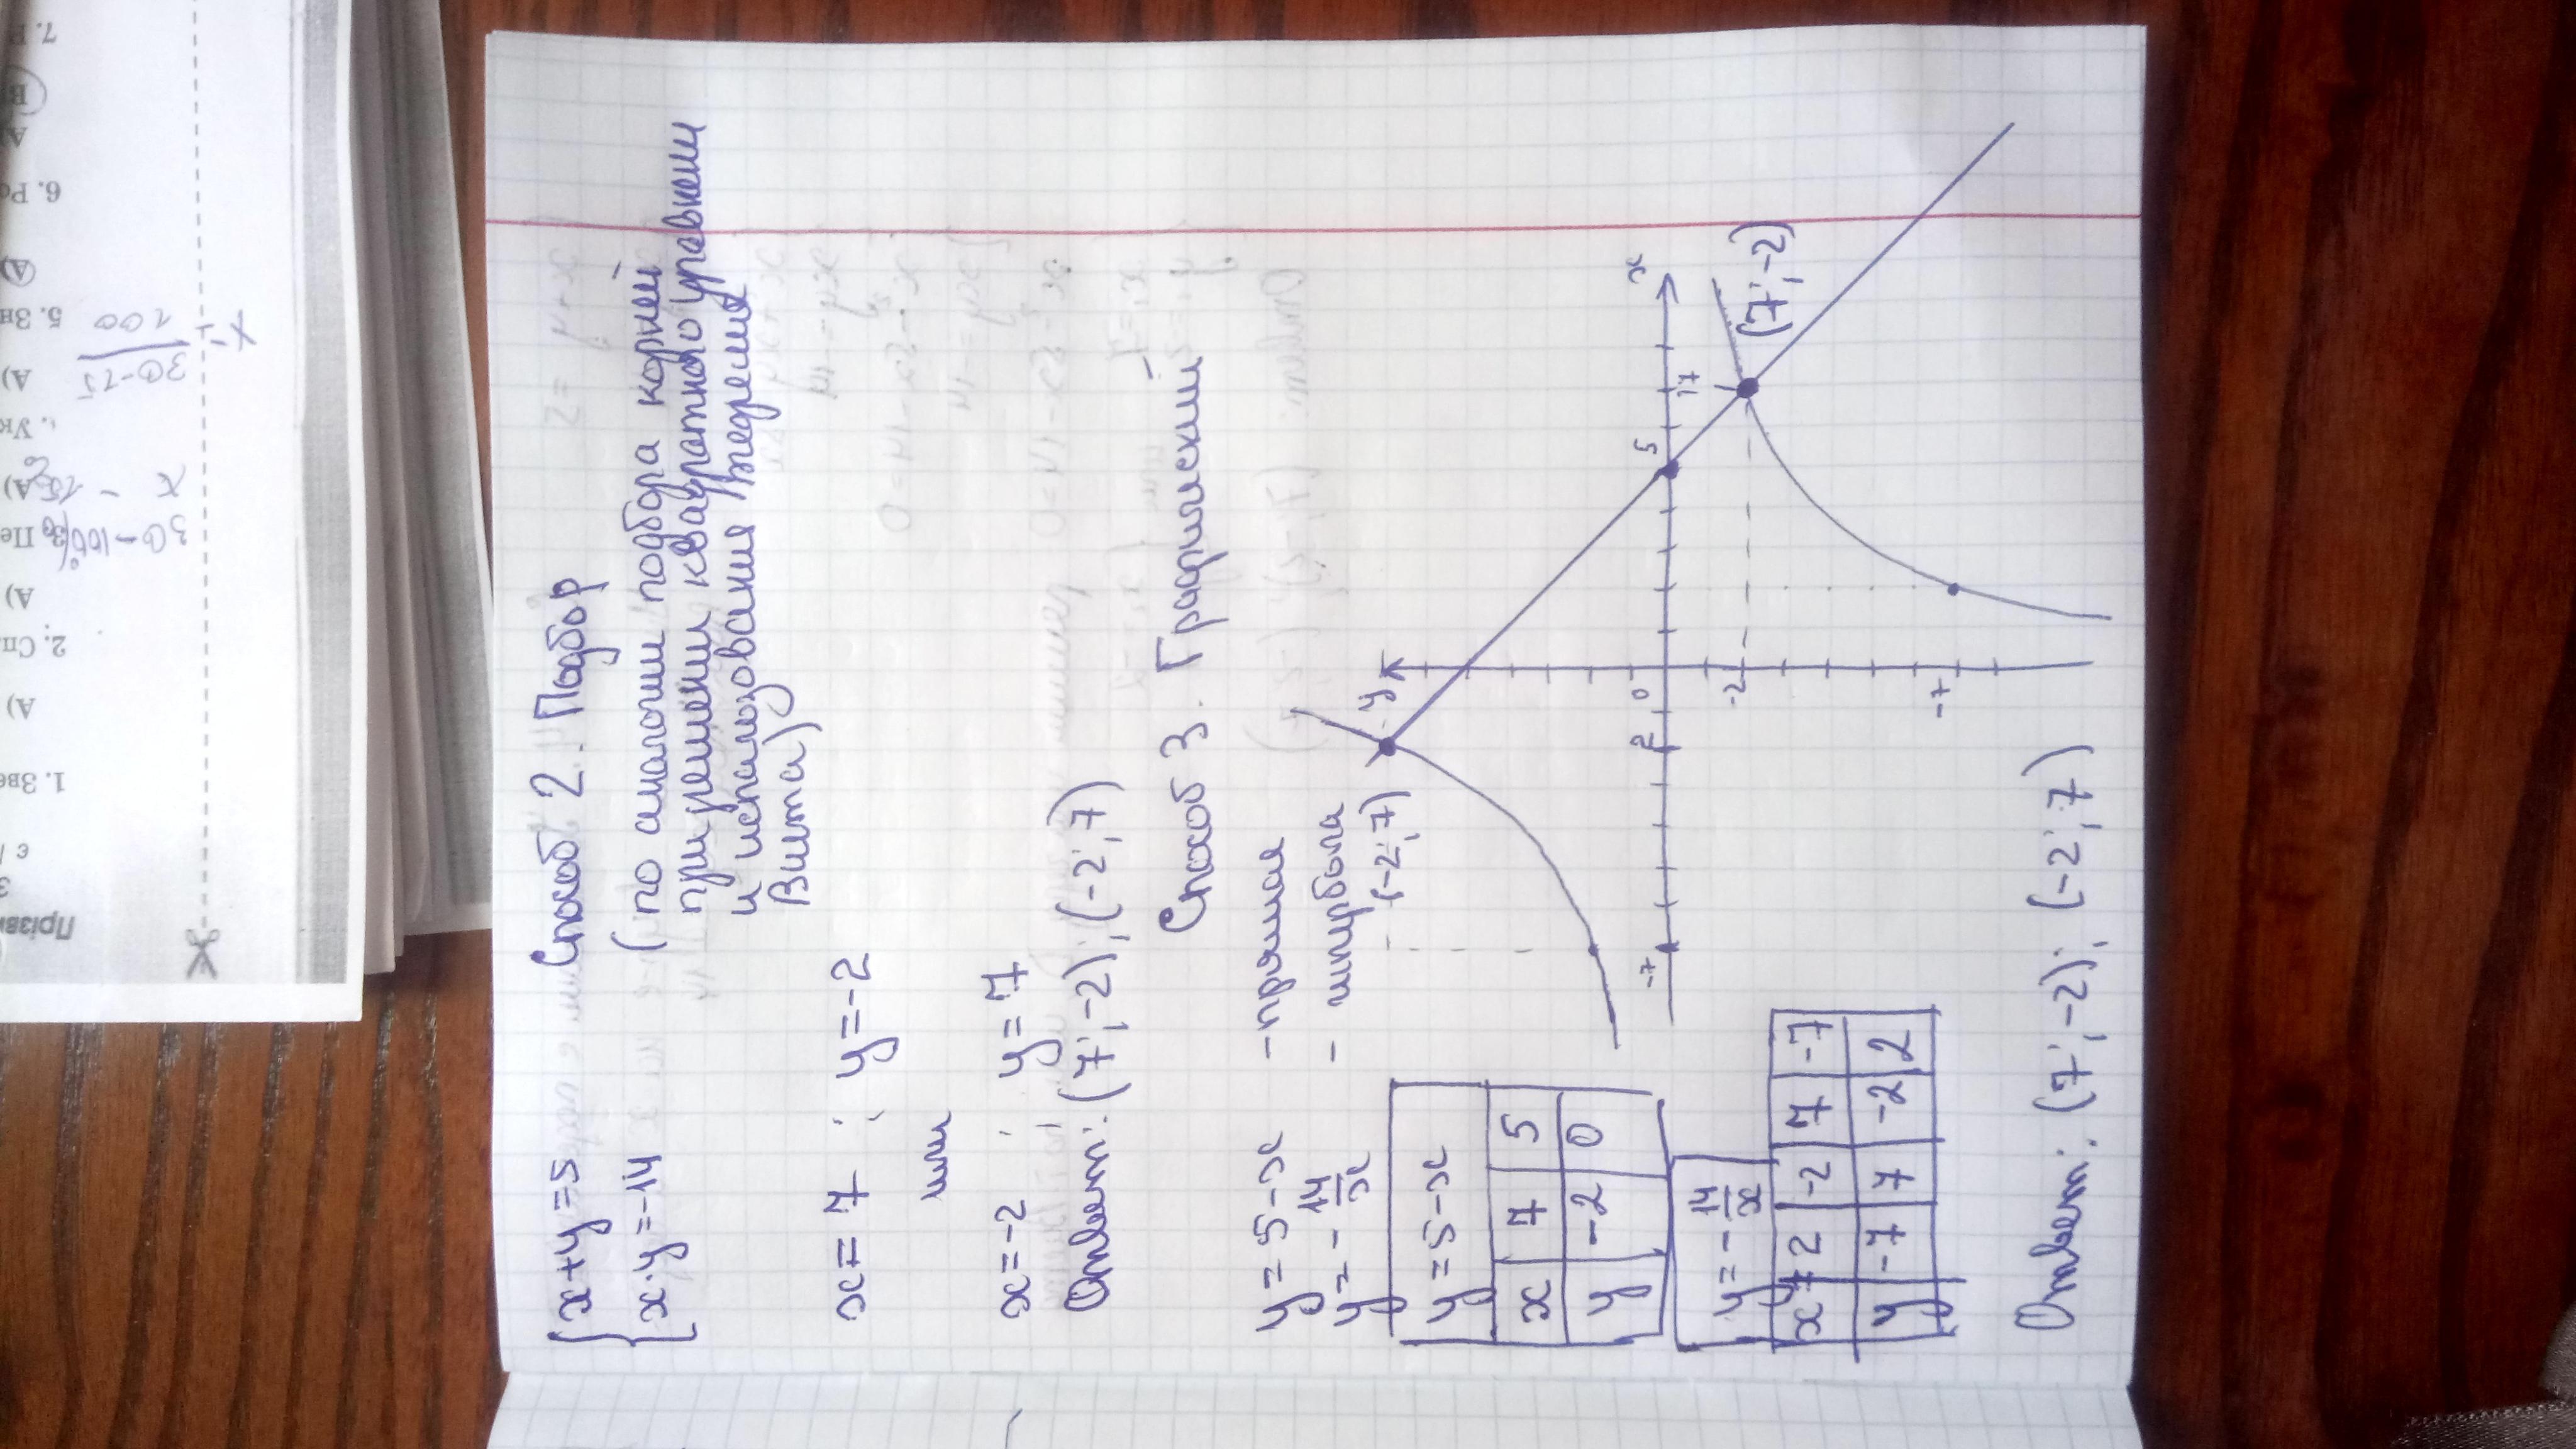 {x+y=5
x·y=-14
Способ 2. Подбор
(по аналогии подбора корней
при решении квадратного уравнения
и использования теоремы
Виета)
x=7 ; y=-2
или
x=-2 ; y=7
Ответ: (7;-2); (-2;7)
Способ 3. Графический
y=5-x -прямая
y=-14/x - гипербола
y=5-x
x 7 5
y -2 0
y=-14/x
x 2 -2 7 -7
y -7 7 -2 2
y
(-2;7)
x
-7
2
0
5
7
-2
(7;-2)
-7
Ответ: (7;-2); (-2;7)
Прізви
1. Зве
А)
2. Сп
А)
А)
А)
5. Зн
А)
6. Ро
А)
В
7.
30-100%
x - 15%
30·15
100